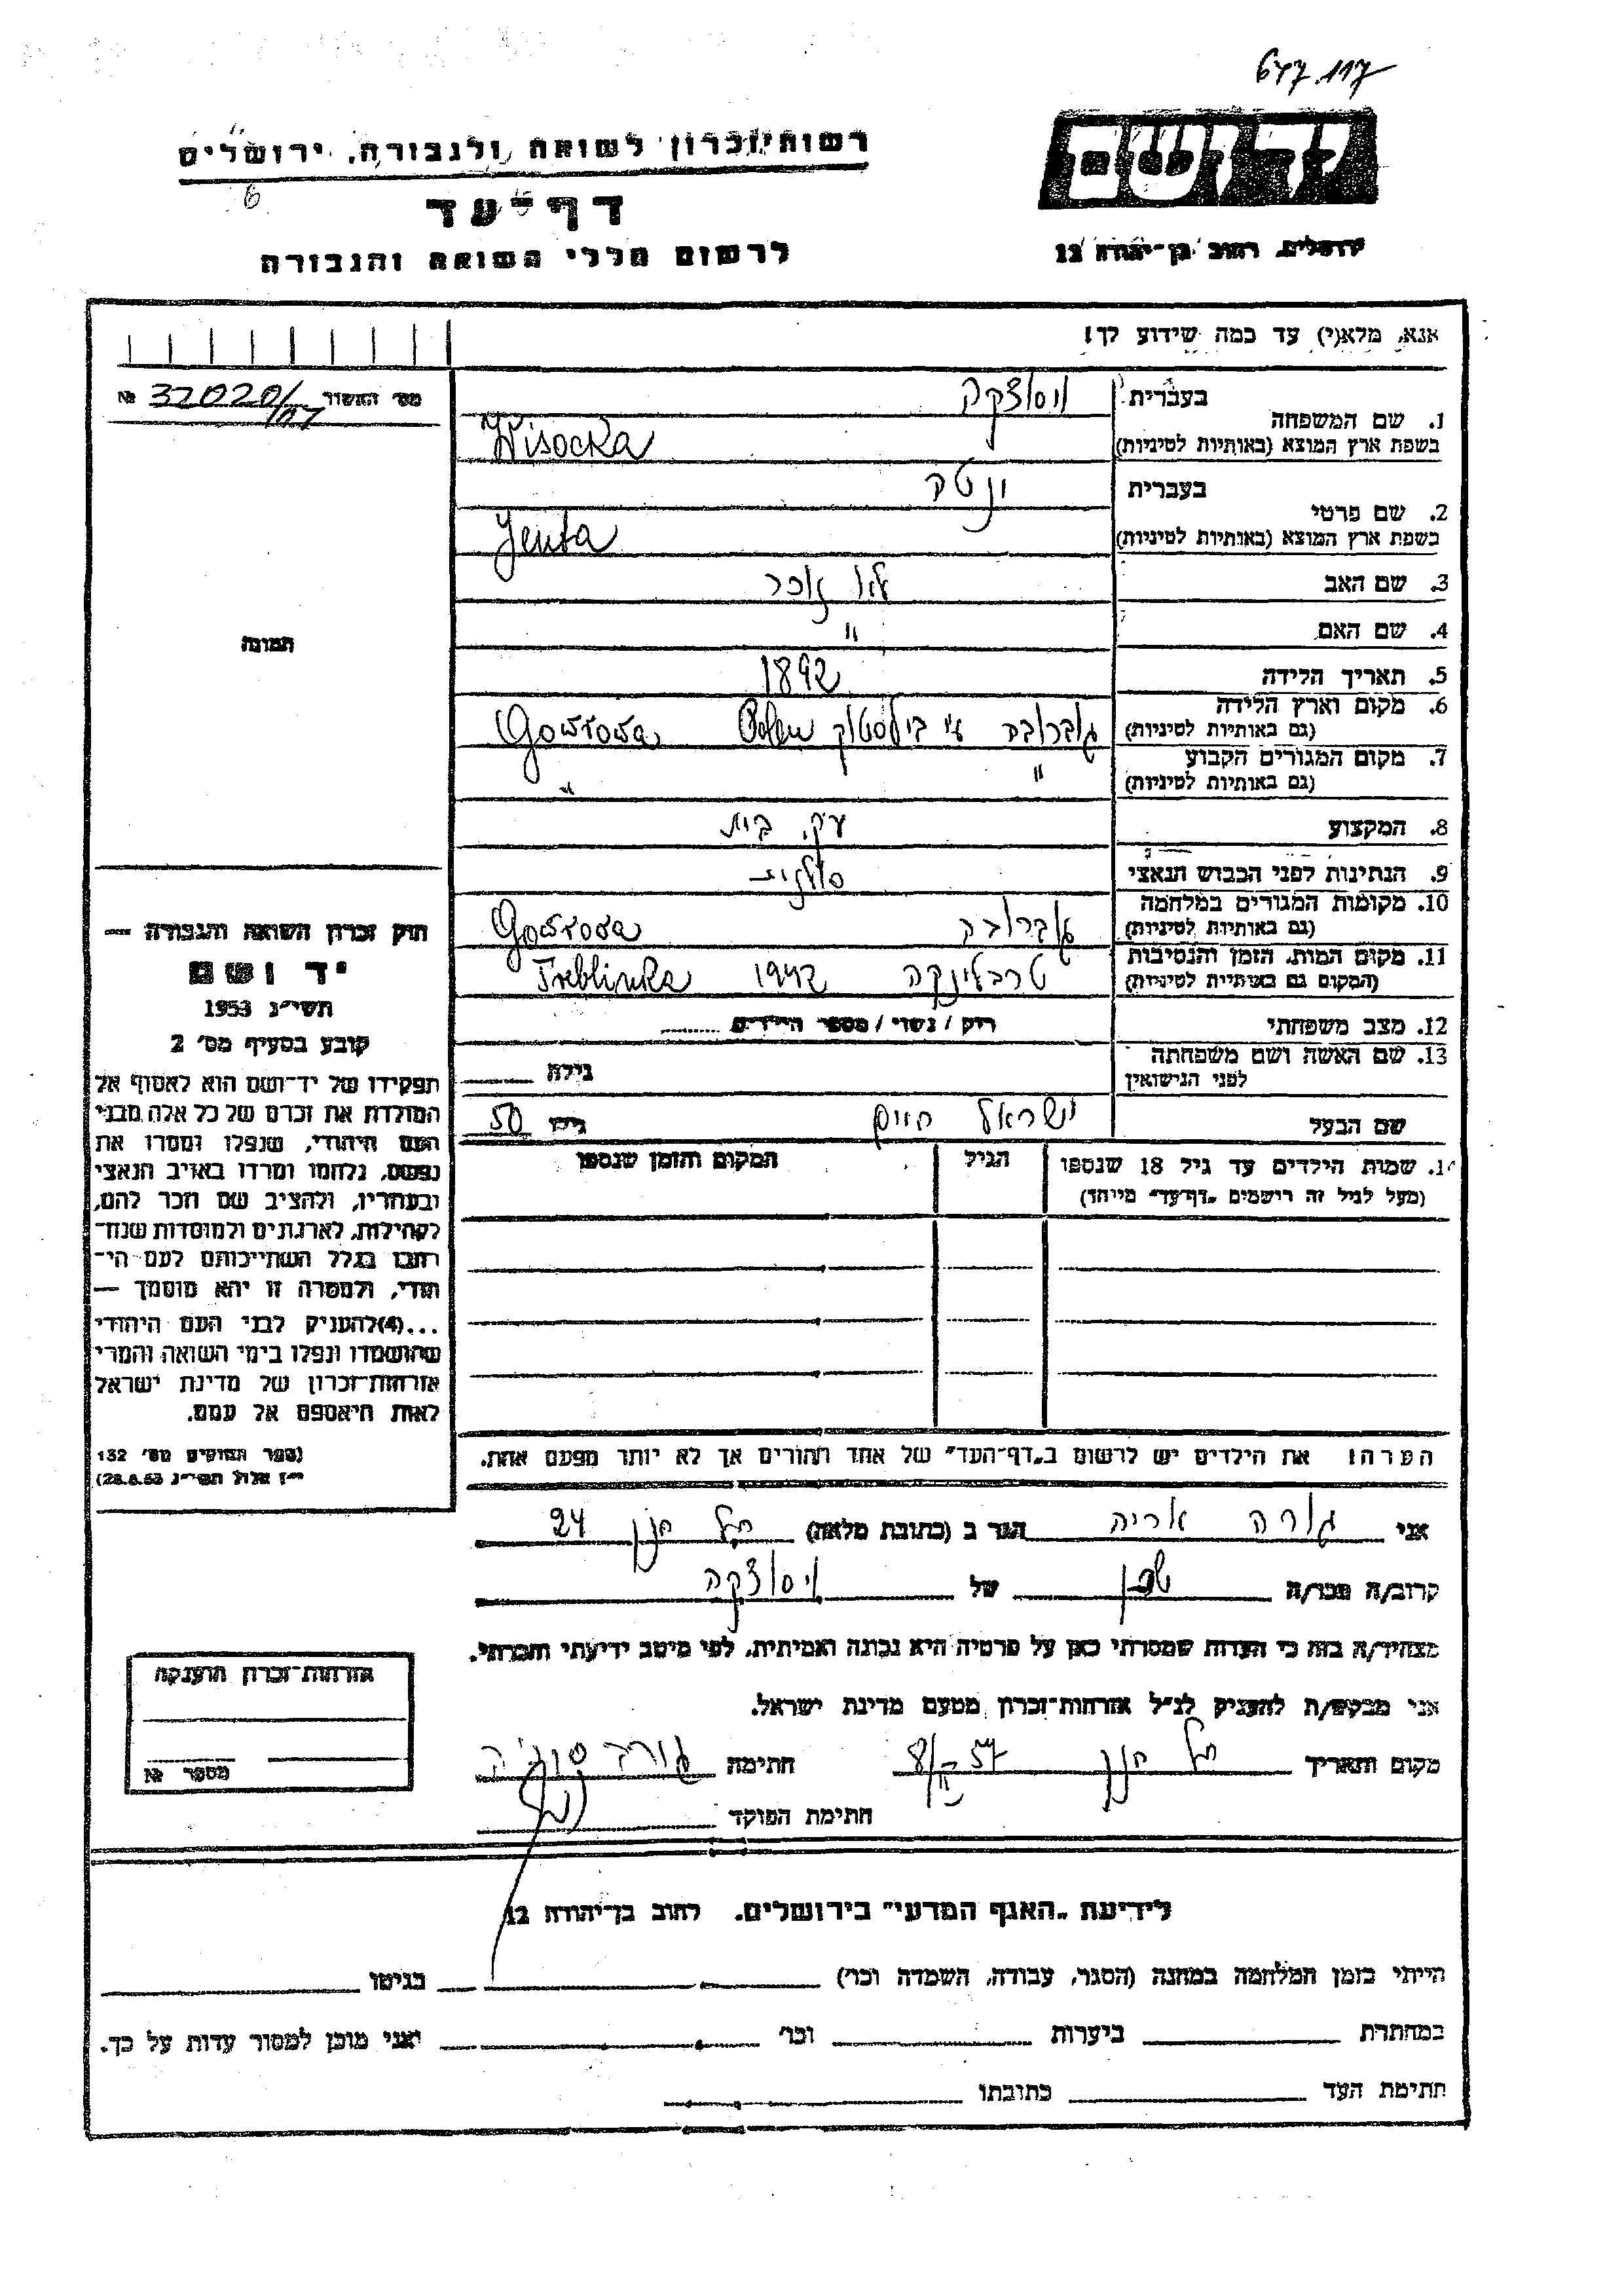 647.117
רשות־זכרון לשואה ולגבורה, ירושלים
יד ושם
דף־עד
6
לרשום חללי השואה והגבורה
ירושלים, רחוב בן־יהודה 12
אנא, מלא(י) עד כמה שידוע לך!
מס׳ האשור № 32020/117
1. שם המשפחה
בעברית ויסוצקה
בשפת ארץ המוצא (באותיות לטיניות) Wisocka
2. שם פרטי
בעברית ינטה
בשפת ארץ המוצא (באותיות לטיניות) Jenta
3. שם האב לא זוכר
4. שם האם "
תמונה
5. תאריך הלידה 1892
6. מקום וארץ הלידה
(גם באותיות לטיניות) גוברובה ע״י ביליסטוק Polen Goworowa
7. מקום המגורים הקבוע
(גם באותיות לטיניות) " "
8. המקצוע עק. בית
9. הנתינות לפני הכבוש הנאצי פולנית
10. מקומות המגורים במלחמה
(גם באותיות לטיניות) גוברובה Goworowa
11. מקום המות, הזמן והנסיבות
(המקום גם באותיות לטיניות) טרבלינקה 1942 Treblinka
12. מצב משפחתי רווק / נשוי / מספר הילדים
13. שם האשה ושם משפחתה
לפני הנישואין גילה
שם הבעל ישראל חיים גילו 50
14. שמות הילדים עד גיל 18 שנספו
(מעל לגיל זה רושמים „דף־עד״ מיוחד)
הגיל
המקום והזמן שנספו
חוק זכרון השואה והגבורה —
יד ושם
תשי״ג 1953
קובע בסעיף מס׳ 2
תפקידו של יד־ושם הוא לאסוף אל
המולדת את זכרם של כל אלה מבני
העם היהודי, שנפלו ומסרו את
נפשם, נלחמו ומרדו באויב הנאצי
ובעוזריו, ולהציב שם וזכר להם,
לקהילות, לארגונים ולמוסדות שנח־
רבו בגלל השתייכותם לעם הי־
הודי, ולמטרה זו יהא מוסמך —
...(4) להעניק לבני העם היהודי
שהושמדו ונפלו בימי השואה והמרי
אזרחות־זכרון של מדינת ישראל
לאות היאספם אל עמם.
(ספר החוקים מס׳ 132
י״ז אלול תשי״ג 28.8.53)
הערה! את הילדים יש לרשום ב„דף־העד״ של אחד ההורים אך לא יותר מפעם אחת.
אני גורה אריה הגר ב (כתובת מלאה) תל חנן 24
קרוב/ה מכר/ה שכן של ויסוצקה
מצהיר/ה בזה כי העדות שמסרתי כאן על פרטיה היא נכונה ואמיתית, לפי מיטב ידיעתי והכרתי.
אני מבקש/ת להעניק לנ״ל אזרחות־זכרון מטעם מדינת ישראל.
מקום ותאריך תל חנן 57 חתימה
חתימת הפוקד
אזרחות־זכרון הוענקה
מספר №
לידיעת „האגף המדעי״ בירושלים. רחוב בן־יהודה 12
הייתי בזמן המלחמה במחנה (הסגר, עבודה, השמדה וכו׳) בגיטו
במחתרת ביערות וכו׳ ואני מוכן למסור עדות על כך.
חתימת העד כתובתו